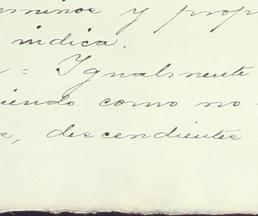 y prop
indica.
= Igualmente
iendo como no
s, descendientes